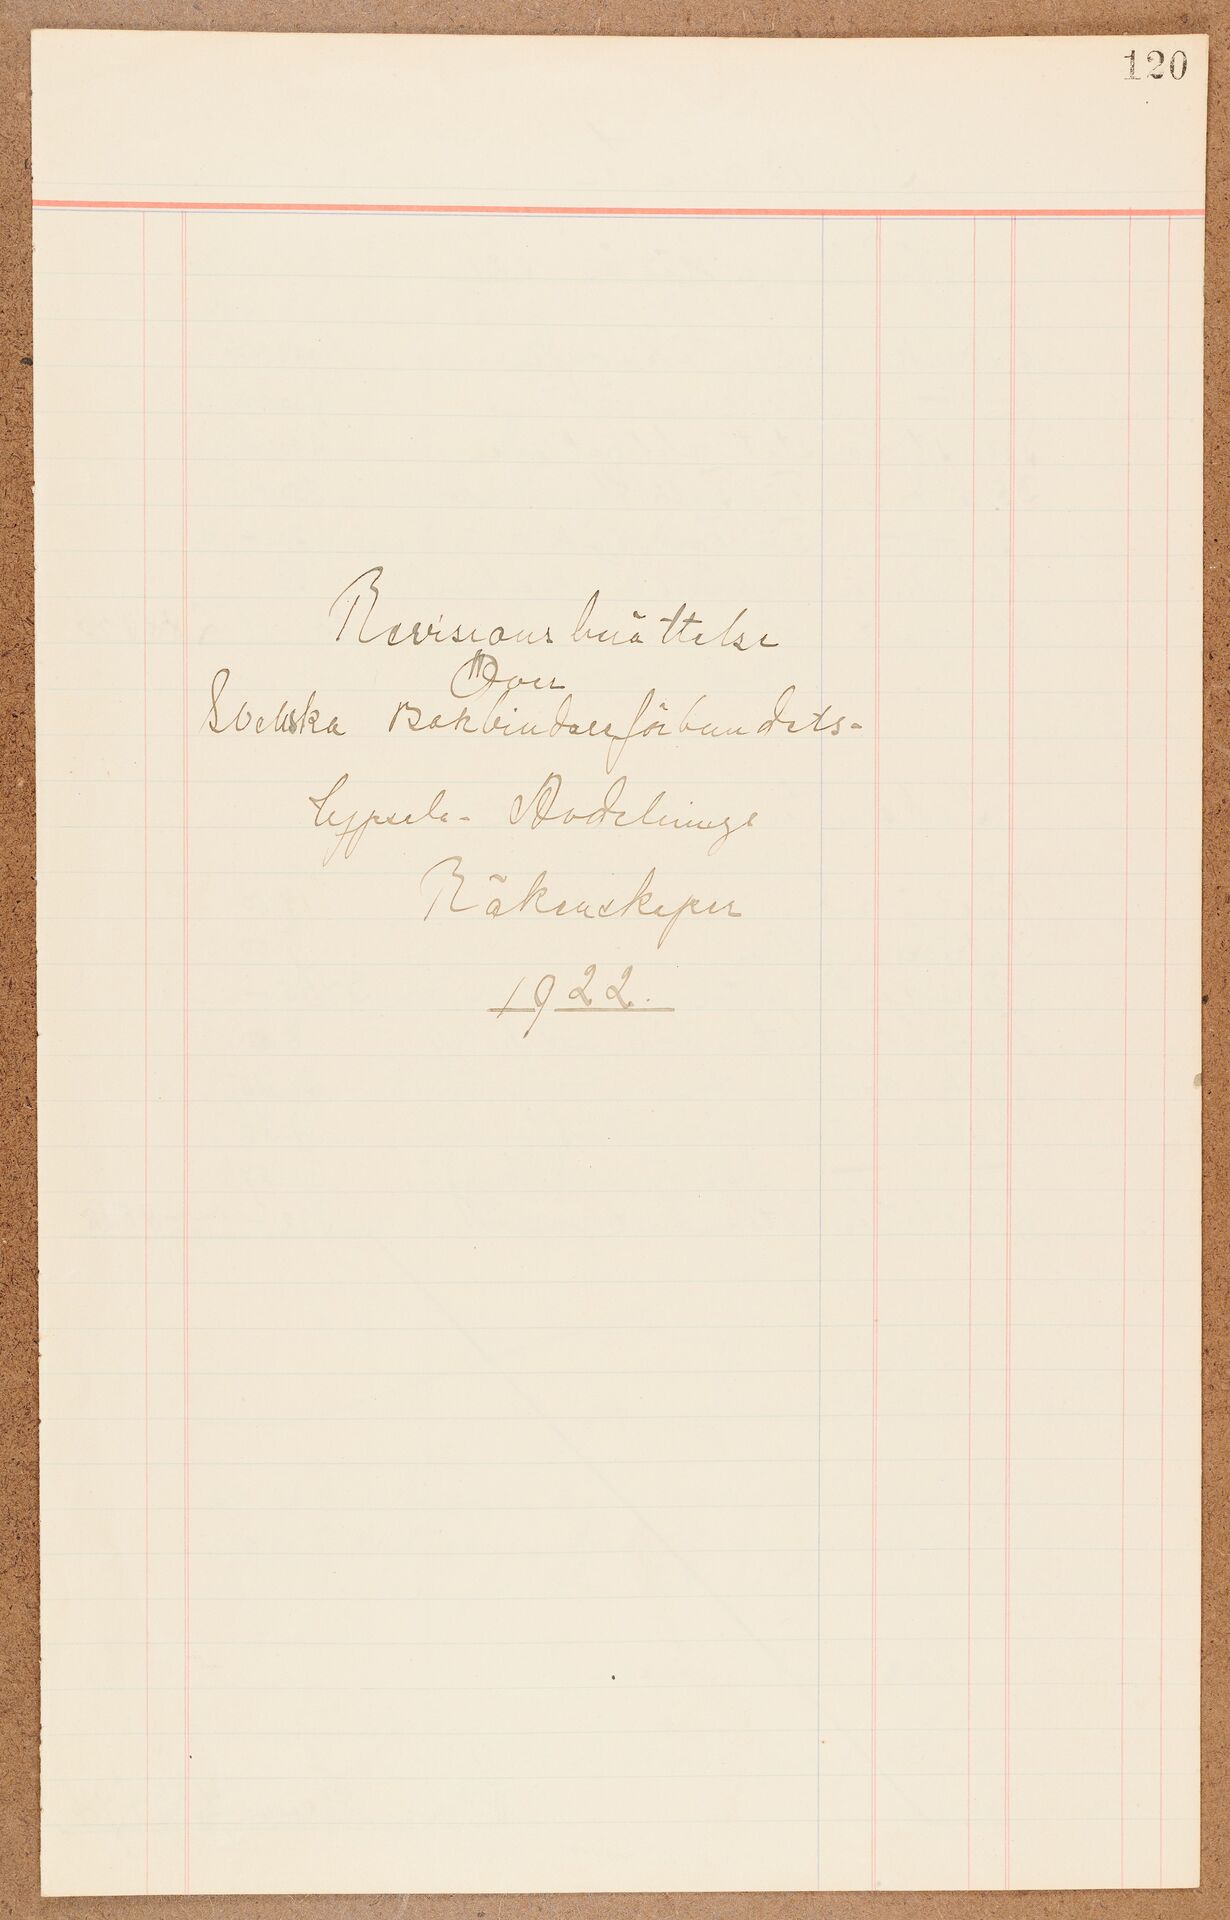 120
Revisionsberättelse
Över
Svenska Bokbindareförbundets-
Uppsala- Avdelnings
Räkenskaper
1922.